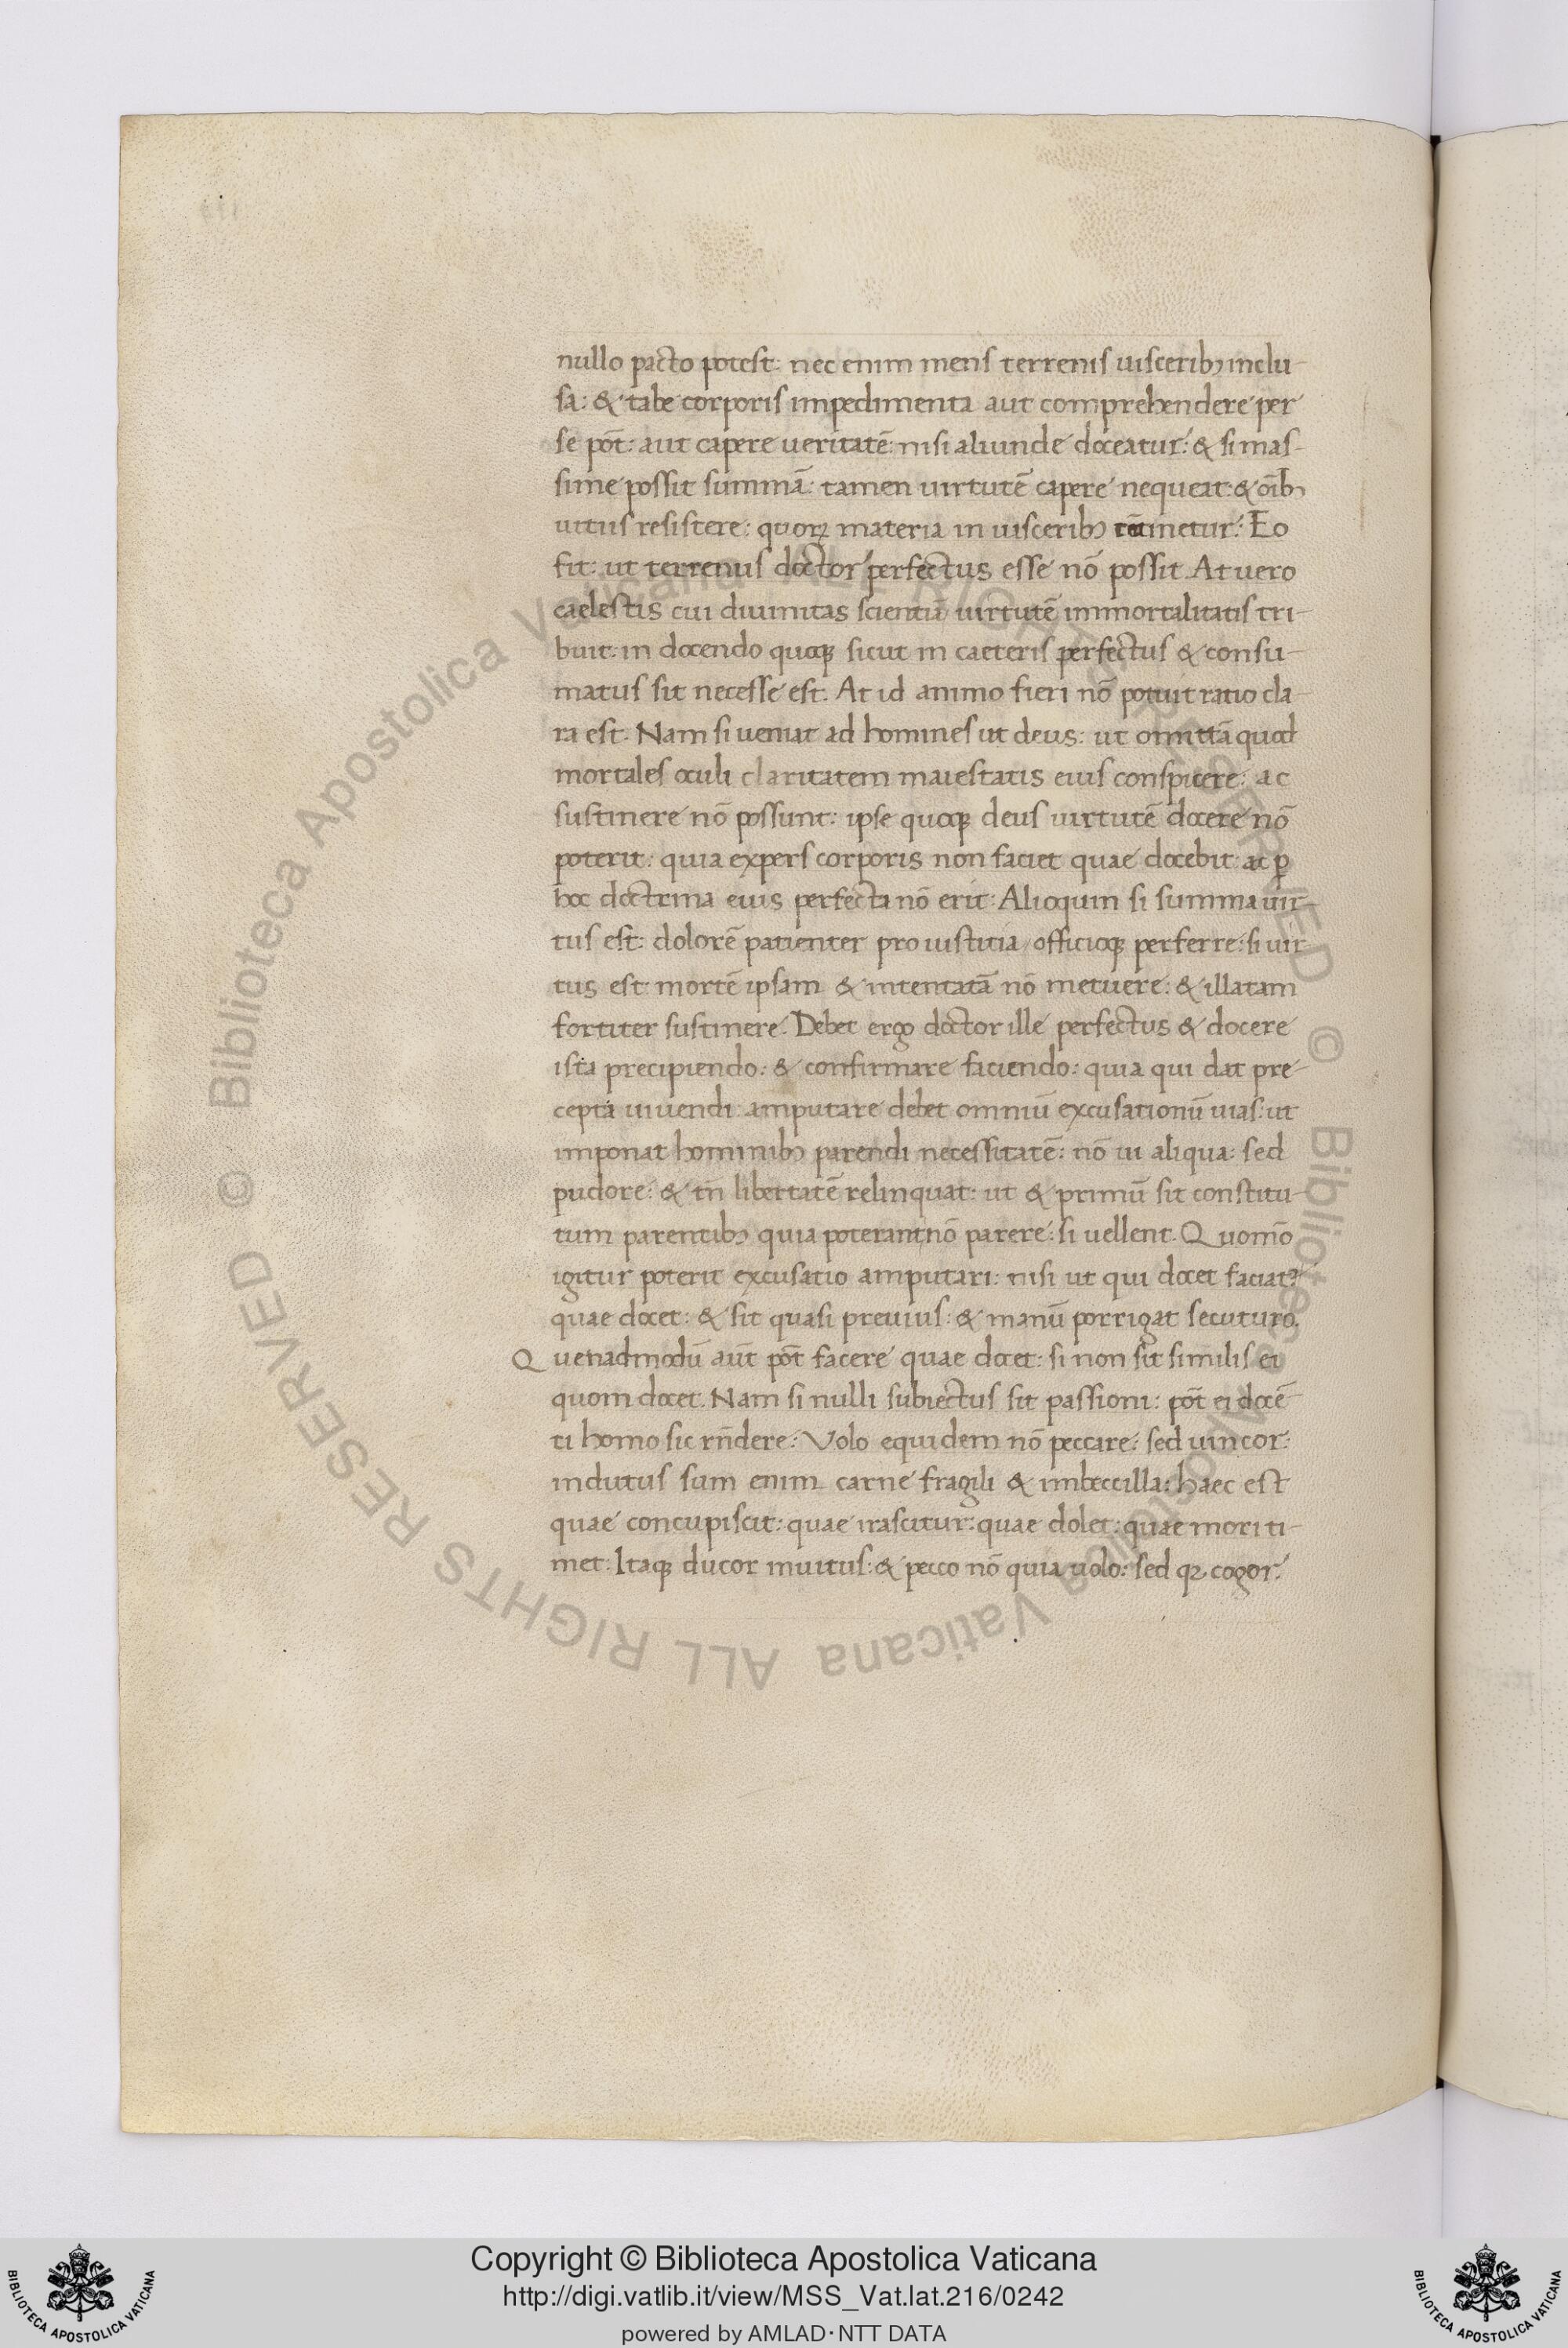 nullo pacto potest: nec enim mens terrenis uisceribꝫ inclu-
sa: & tabe corporis impedimenta aut comprehendere per
se põt: aut capere ueritatẽ: nisi aliunde doceatur: & si mas-
sime possit summã: tamen uirtutẽ capere nequeat: & oĩbꝫ
uitiis resistere: quoꝝ materia in uisceribꝫ cõtinetur: Eo
fit: ut terrenus doctor perfectus esse nõ possit. At uero
caelestis cui diuinitas scientiã uirtutẽ immortalitatis tri-
buit: in docendo quoqꝫ sicut in caeteris perfectus & consu-
matus sit necesse est. At id animo fieri nõ potuit ratio cla-
ra est. Nam si ueniat ad homines ut deus: ut omittã quod
mortales oculi claritatem maiestatis eius conspicere: ac
sustinere nõ possunt: ipse quoqꝫ deus uirtutẽ docere nõ
poterit: quia expers corporis non faciet quae docebit: ac ꝑ
hoc doctrina eius perfecta nõ erit: Alioquin si summa uir-
tus est: dolorẽ patienter pro iustitia / officioqꝫ perferre: si uir
tus est mortẽ ipsam & intentatã nõ metuere: & illatam
fortiter sustinere. Debet ergo doctor ille perfectus & docere
ista precipiendo: & confirmare faciendo: quia qui dat pre-
cepta uiuendi: amputare debet omniũ excusationũ uias: ut
imponat hominibꝫ parendi necessitatẽ: nõ ui aliqua: sed
pudore: & tñ libertatẽ relinquat: ut & primũ sit constitu-
tum parentibꝫ quia poterant nõ parere: si uellent. Quomõ
igitur poterit excusatio amputari: nisi ut qui docet faciat?
quae docet: & sit quasi preuius: & manũ porrigat secuturo.
Quenadmodũ aũt põt facere quae docet: si non sit similis ei
quom docet. Nam si nulli subiectus sit passioni: põt ei docẽ-
ti homo sic rñdere: Volo equidem nõ peccare: sed uincor:
indutus sum enim carne fragili & imbeccilla: haec est
quae concupiscit: quae irascitur: quae dolet: quae mori ti-
met: Itaqꝫ ducor inuitus: & pecco nõ quia uolo: sed qꝛ cogor:
© Biblioteca Apostolica Vaticana ALL RIGHTS RESERVED © Biblioteca Apostolica Vaticana ALL RIGHTS RESERVED
Copyright © Biblioteca Apostolica Vaticana
http://digi.vatlib.it/view/MSS_Vat.lat.216/0242
powered by AMLAD·NTT DATA
BIBLIOTECA APOSTOLICA VATICANA
BIBLIOTECA APOSTOLICA VATICANA